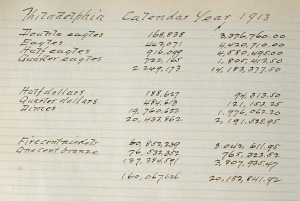 Philadelphia Calendar Year 1913
Double eagles 168,838 3,376,760.00
Eagles 442,071 4,420,710.00
Half eagles 916,099 4,580,495.00
Quarter eagles 722,165 1,805,412.50
2,249,173 14,183,377.50
Half dollars 188,627 94,313.50
Quarter dollars 484,613 121,153.25
Dimes 19,760,622 1,976,062.20
20,433,862 2,191,528.95
Five cent nickels 60,852,239 3,042,611.95
One cent bronze 76,532,352 765,323.52
137,384,591 3,807,935.47
160,067,626 20,182,841.92